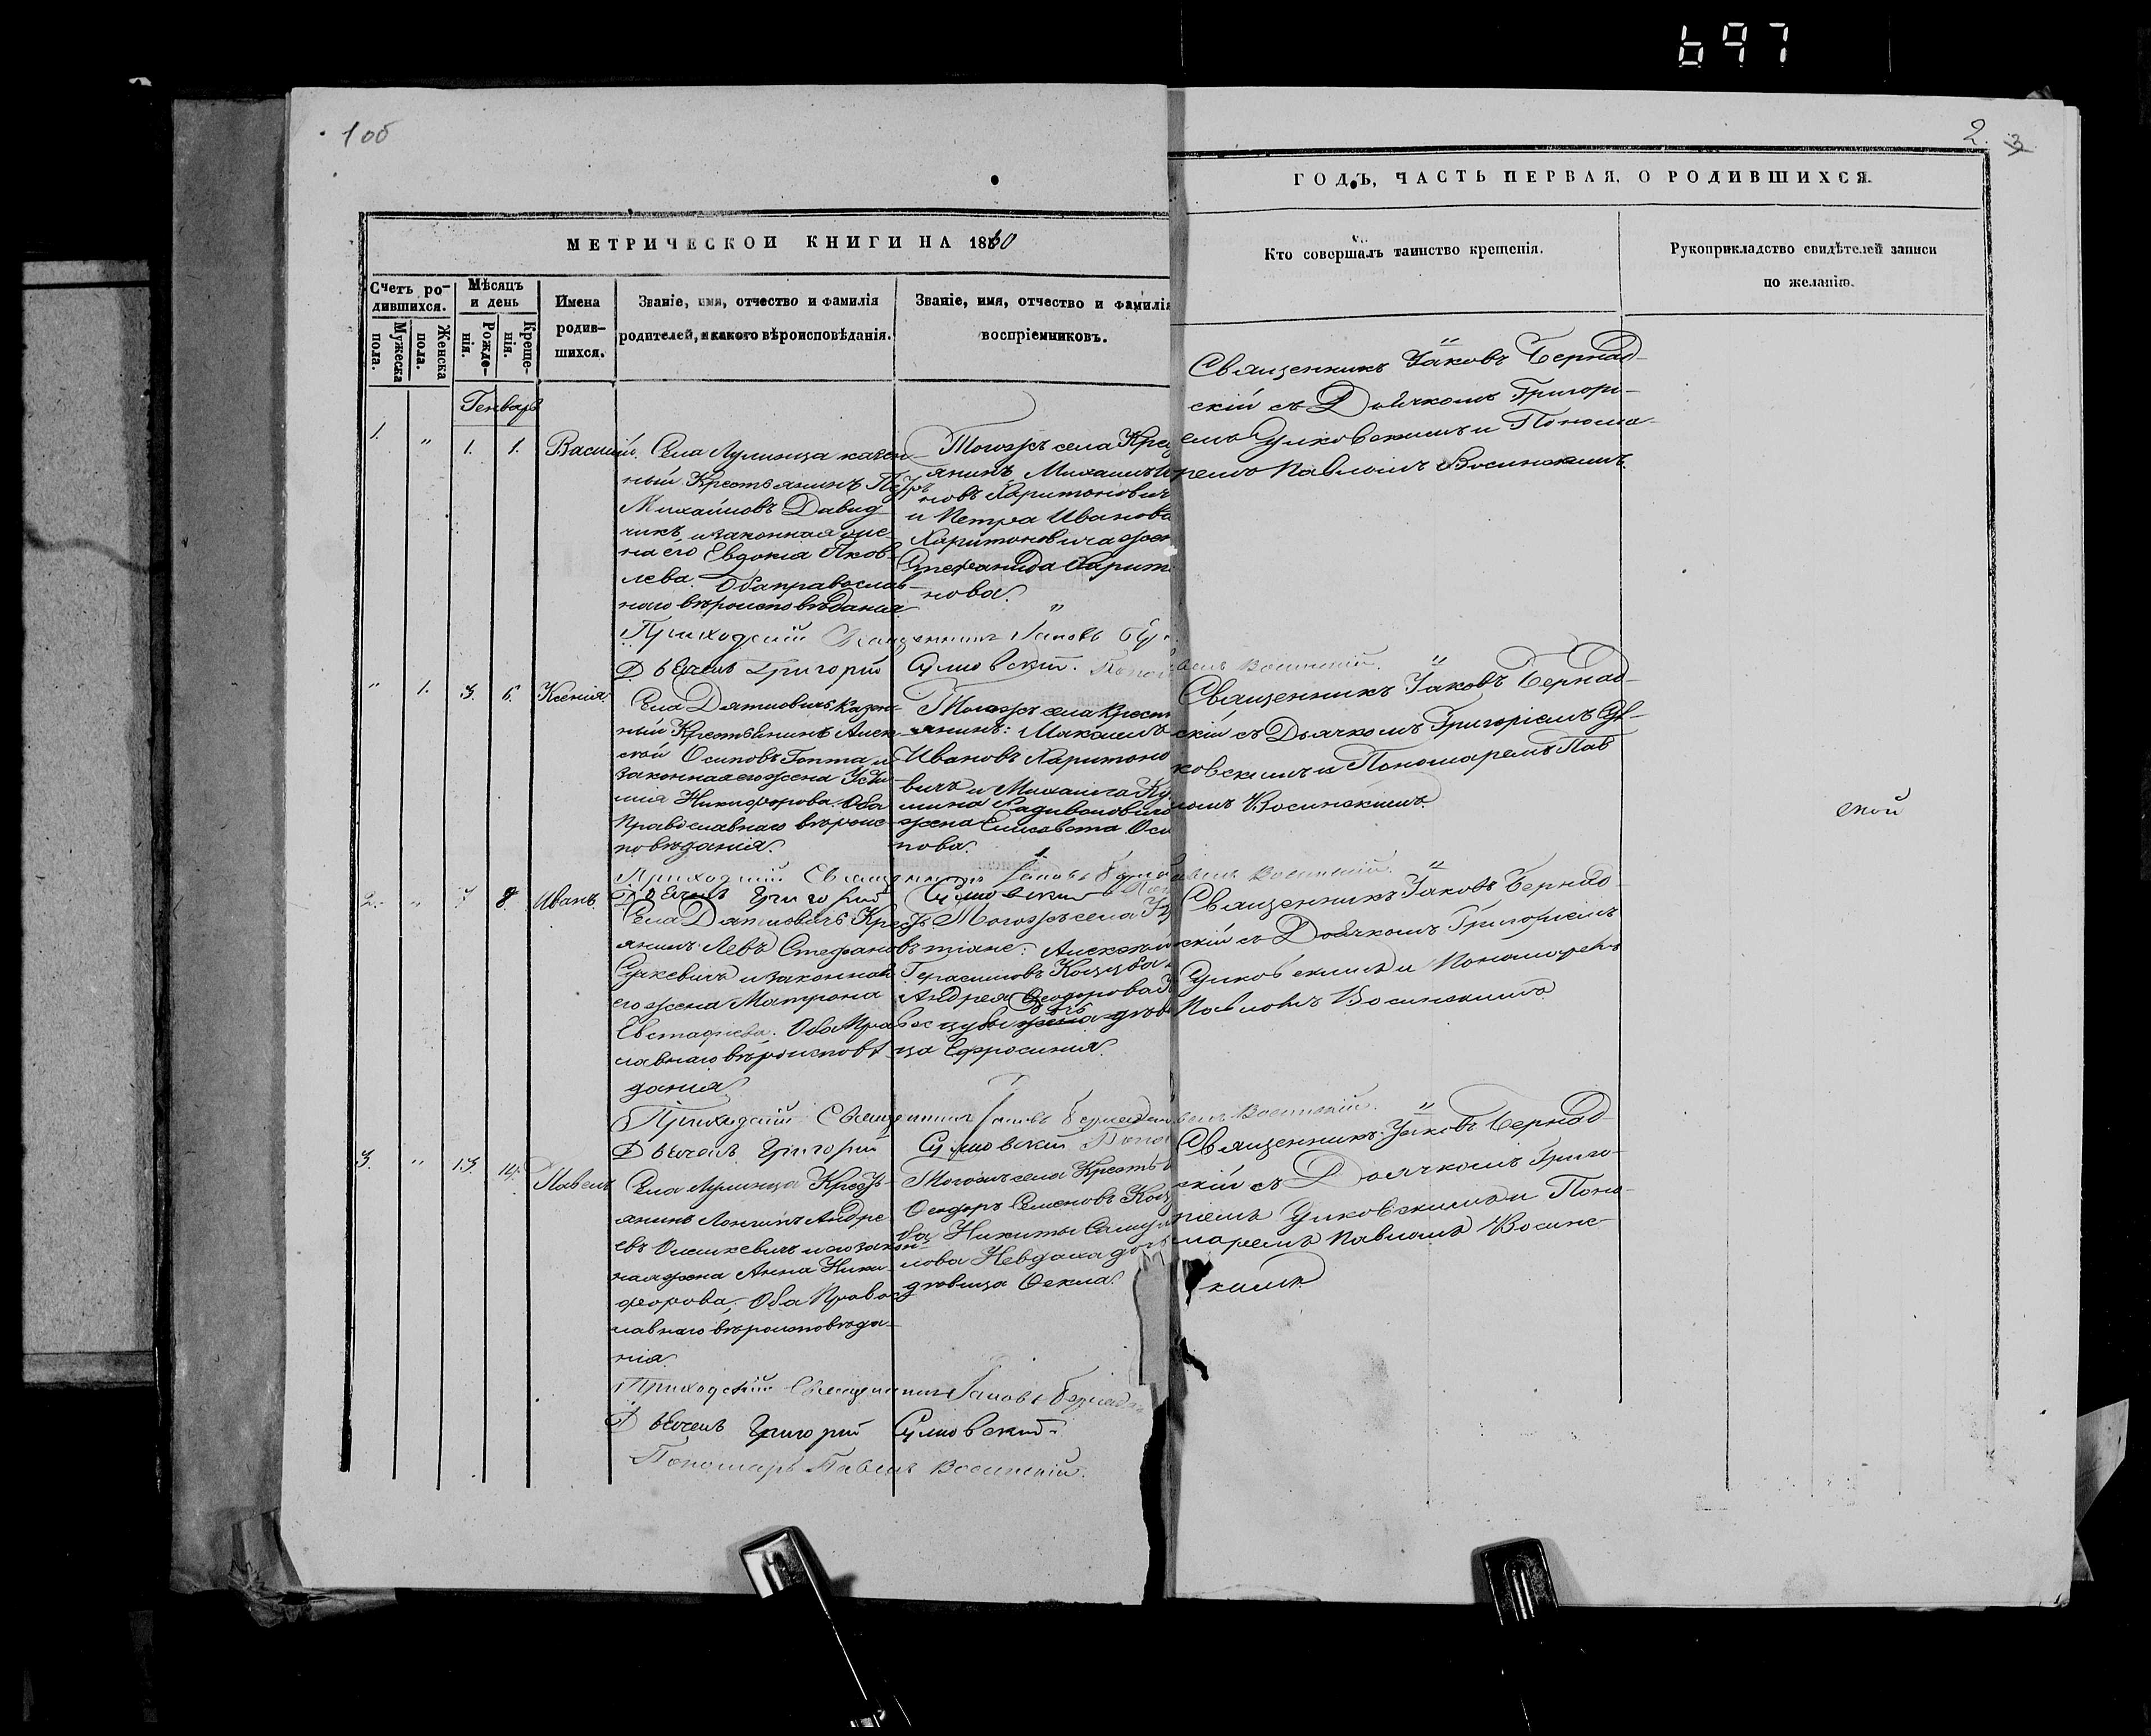 697
1 об
2. 3
МЕТРИЧЕСКОЙ КНИГИ НА 1860
ГОДЪ, ЧАСТЬ ПЕРВАЯ, О РОДИВШИХСЯ.
Счетъ ро-
дившихся.
Мужеска
пола.
Женска
пола.
Мѣсяцъ
и день
Рожде-
нія.
Креще-
нія.
Имена
родив-
шихся.
Званіе, имя, отчество и фамилія
родителей, и какого вѣроисповѣданія.
Званіе, имя, отчество и фамилія
воспріемниковъ.
Кто совершалъ таинство крещенія.
Рукоприкладство свидѣтелей записи
по желанію.
Генварь
1. " 1. 1. Василій.
Села Лулинца казен-
ный Крестьянинъ Петръ
Михайловъ Давид-
чикъ, и законная же-
на его Евдокія Яков-
лева. Оба православ-
наго вѣроисповѣданія
Тогожъ села Крес
янинъ Михаилъ
новъ Харитоновичъ
и Петра Иванова
Харитоновича жен
Стефанида Харит
нова.
Священникъ Іаковъ Бернад-
скій съ Дьячкомъ Григорі-
емъ и Понома-
ремъ Павломъ Восинскимъ.
Приходскій Священникъ Іаковъ
Дьячекъ Григорій
" 1. 3. 6. Ксенія.
Села Дятловичъ Казен-
ный Крестьянинъ Алек-
сѣй Осиповъ Гопта и
законная его жена
Никифорова. Оба
Православнаго вѣроис-
повѣданія.
Тогожъ села Крест
янинъ:
Ивановъ Харитоно
вичъ и Михаила
жена Елисавета Оси
пова.
Священникъ Іаковъ Бернад-
скій съ Дьячкомъ Григоріемъ
ковскимъ и Пономаремъ Пав
ломъ Восинскимъ.
ской
Приходскій Священникъ Іаковъ
Дьячекъ Григорій
2. " 7 8. Иванъ.
Села Дятловичъ Кресть
янинъ Левъ Стефановъ
и законная
его жена Матрона
Евстафіева. Оба Правос
лавнаго вѣроисповѣ
данія.
Тогожъ села
тіане:
Герасимовъ Коцуба
Андрея Ѳеодорова
цубы дочь дѣви
ца Ефросинія.
Священникъ Іаковъ Бернад-
скій съ Дьячкомъ Григоріемъ
и Пономаремъ
Павломъ Восинскимъ.
Приходскій Священникъ Іаковъ
Дьячекъ Григорій
3. " 13. 14. Павелъ
Села Лулинца Кресть-
янинъ Лонгинъ Андре
евъ Олешкевичъ и его закон-
ная жена Анна Ники-
форова, Оба Правос
лавнаго вѣроисповѣда-
нія.
Тогожъ села Кресть
Ѳеодоръ Семеновъ Коц
ба, Никиты
лова Невдаха доч
дѣвица Ѳекла.
Священникъ Іаковъ Бернад-
скій съ Дьячкомъ Григо-
ріемъ и Поно-
маремъ Павломъ Восинс-
кимъ
Приходскій Священникъ Іаковъ
Дьячекъ Григорій
Пономарь Павелъ Восинскій.